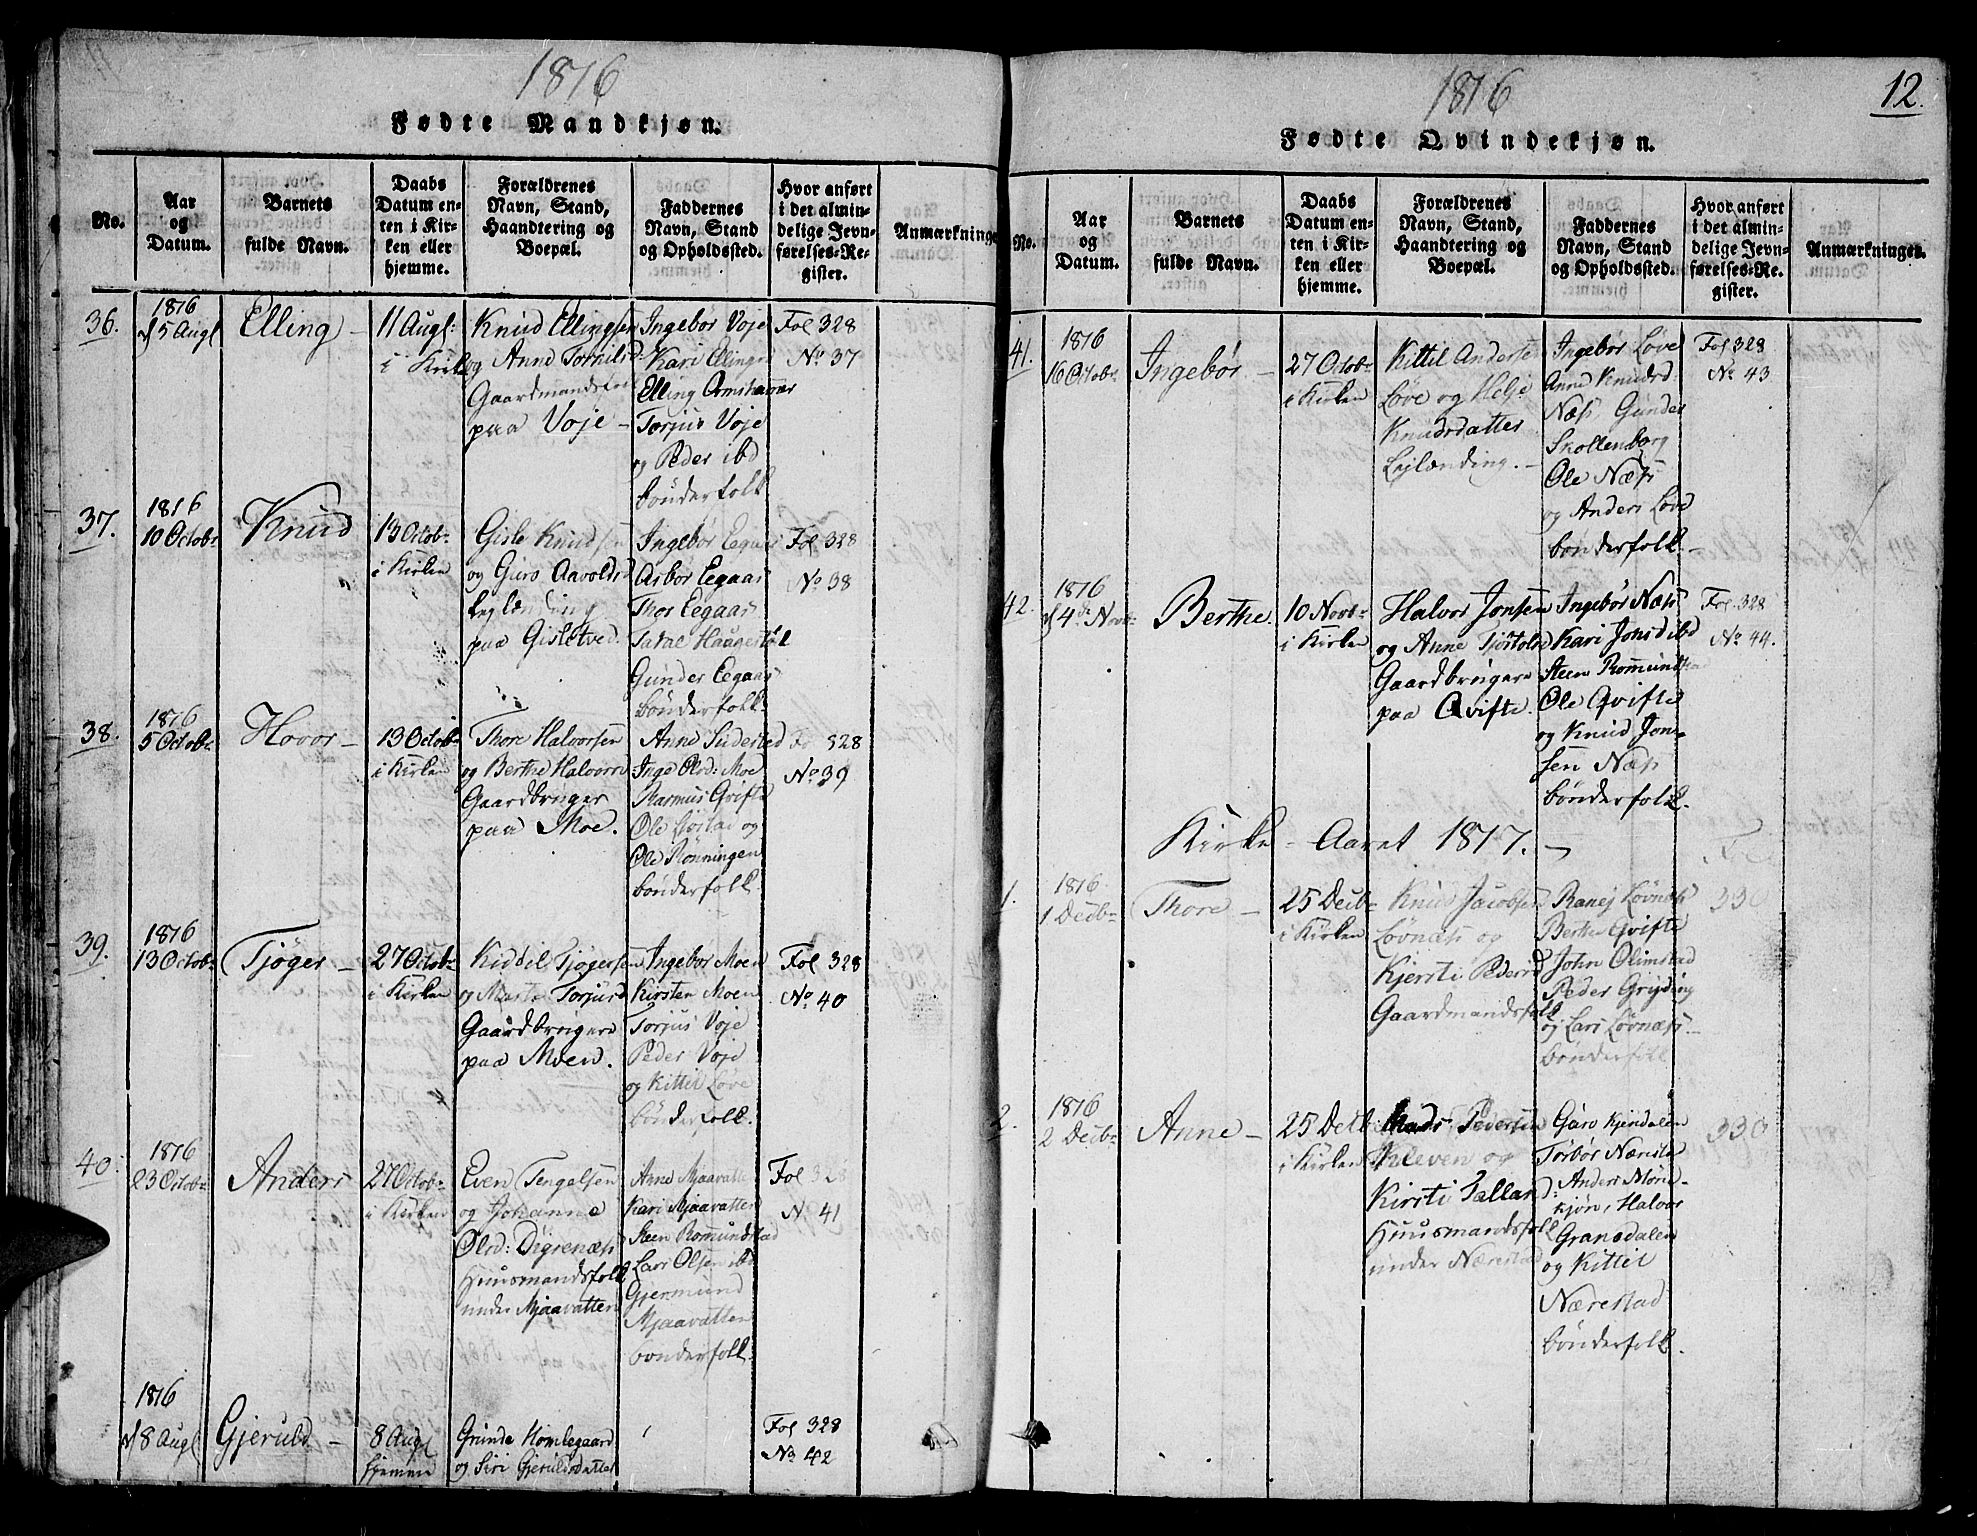 1816
Fødte Mandkjøn.
No.
Aar
og
Datum.
Barnets
fulde Navn.
Daabs
Datum en-
ten i Kir-
ken eller
hjemme.
Forældrenes
Navn, Stand,
Haandtering og
Boepæl.
Faddernes
Navn, Stand
og Opholdssted.
Hvor anført
i det almin-
delige Jevn-
førelses-Re-
gister.
Anmærkninge
36.
1816
5 Augl
Elling -
11 Augl:
i Kirk
Knud Ellingsen
og Anne Torkilsd:
Gaardmandsfol
paa Voje -
Ingebor Voje
Kari Elings
Elling
Torjus Voje
og Peder ibd
bonderfolk
Fol 328
No 37
37.
1816
10 Octobr
Knud
13 Octobr
i Kirken
Gisle Knudsen
og Guro Aavoldsd
Leglending
paa Gisletved.
Ingebor Eegaas
Asbor Eegaas
Thor Eegaas
Gunder Eegaas
bønderfolk.
Fol 328
No 38
38.
1816
5 Octobr
Hovor -
13 Octobr
i Kirken
Thore Halvorsen
og Berthe Halvors
Gaardbruger
paa Moe.
Anne Suderstad
Inge Olsd: Moe
Rasmus Qvifte
Ole og
Ole Rønningen
bonderfolk.
Fo 328
No 39
39.
1816
13 Octobr
Tjøger -
27 Octobr
i Kirken
Kiddil Tjøgersen
og Marte Torjusd
Gaardbrugere
paa Moen.
Ingebor Moen
Kirsten Moen
Torjus Voje
Peder Voje
og Kittil Løve
bønderfolk.
Fol 328
No 40
40.
1816
23 Octobr
Anders
27 Octobr
i Kirken
Even Tengelsen
og Johanne
Olsd: Digrenæss
Huusmandsfolk
under Mjaavatten
Anne Mjaavatten
Kari Mjaavatten
Steen Romundstad
Lars Olsen ibd
Gjermund
Mjaavatten
bonderfolk.
Fol 328
N. 41
1816
8 Augl
Gjeruld -
8 Augl
hjemme
Grunde Homlegaard
og Siri Gjeruldsdatter
Fol 328
No 42
1816
12.
Fødte Qvindekjøn.
No.
Aar
og
Datum.
Barnets
fulde Navn.
Daabs
Datum en-
ten i Kir-
ken eller
hjemme.
Forældrenes
Navn, Stand,
Haandtering og
Boepæl.
Faddernes
Navn, Stand
og Opholdssted.
Hvor anført
i det almin-
delige Jevn-
førelses-Re-
gister.
Anmærkninger.
41.
1816
16 Octobr
Ingebør -
27 Octobr
i Kirken
Kittil Anderse
Løve og Helje
Knudsdatter
Lejlænding. -
Ingebor Løve
Anne Knudsd:
Næss, Gunder
Skollenborg
Ole Næss
og Anders Løve
bonderfolk. -
Fol 328
No 43
42.
1816
4de Novbr
Berthe.
10 Novbr
i Kirken
Halvor Jonsen
og Anne Tjøstolsd
Gaardbrugere
paa Qvifte.
Ingebør Næss
Kari Jonsd ibd
Steen Romundstad
Ole Qvifte
og Knud Jon-
sen Næss
bønderfolk.
Fol 328
No 44.
Kirke - Aaret 1817. -
1.
1816
1 Decbr
Thore -
25 Decbr
i Kirken
Knud Jacobsen
Løvnæss og
Kjersti Pedersd
Gaardmandsfolk
Ranej Løvnæss
Berthe Qvifte
John Olimstad
Peder Gryting
og Lars Løvnæss -
bønderfolk
330
2.
1816
2 Decbr
Anne -
25 Decbr
i Kirken
Mads Pedersen
Kleven og
Kirsti Tallar
Huusmandsfolk
under Nærestad
Guro Kjendalen
Torbør Nærestad
Anders Møre-
kjøn, Halvor
Gransdalen
og Kittil
Nærestad
bønderfolk.
330